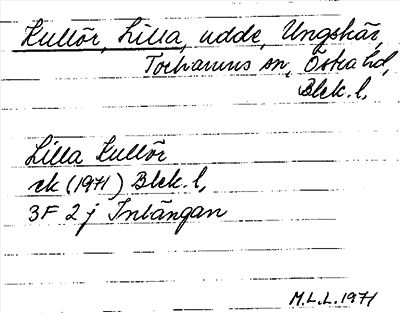 Kullör, Lilla, udde, Ungskär,
Torhamns sn, Östra hd,
Blek. l,
Lilla Kullör
ek (1971) Blek. l,
3F 2 j Inlängan
M.L.L. 1971